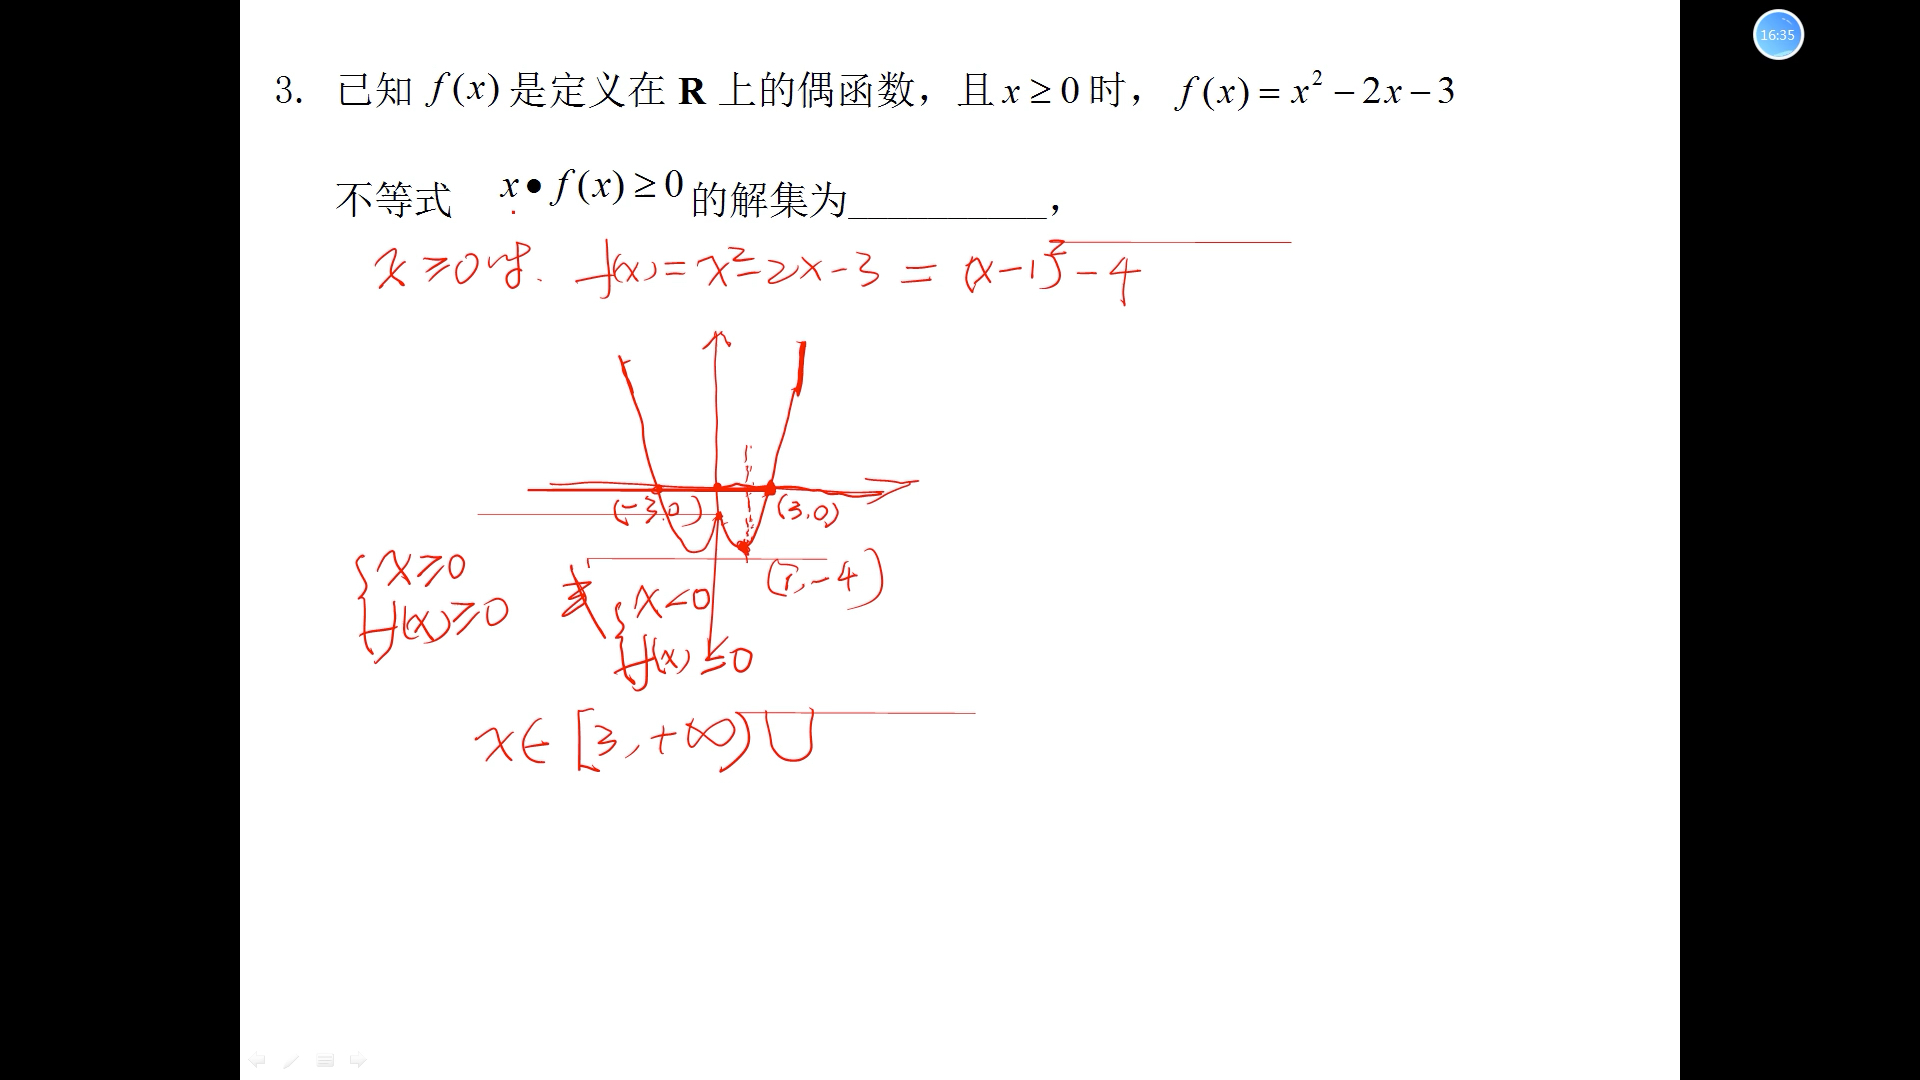 16:35
3. 已知 f(x) 是定义在 R 上的偶函数，且 x ≥ 0 时， f(x) = x² − 2x − 3
不等式 x • f(x) ≥ 0 的解集为__________，
x ≥ 0 时. f(x) = x² − 2x − 3 = (x − 1)² − 4
(−3,0) (3,0)
(1,−4)
{ x ≥ 0 或 { x < 0
f(x) ≥ 0 f(x) ≤ 0
x ∈ [3, +∞) ∪